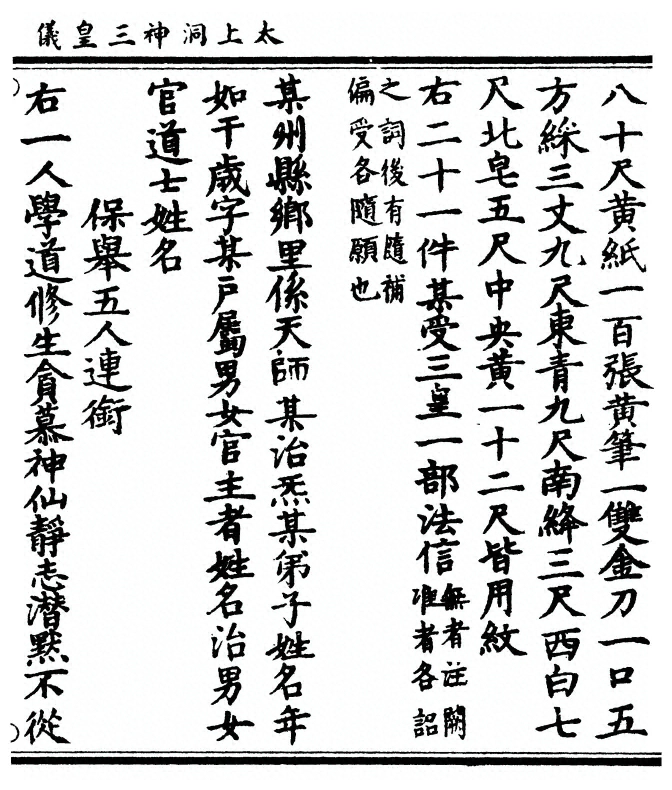 太上洞神三皇儀
八十尺黄紙一百張黄筆一雙金刀一口五
方綵三丈九尺東青九尺南絳三尺西白七
尺北皂五尺中央黄一十二尺皆用紋
右二十一件某受三皇一部法信
無者注闕
准者各詔
之詞後有隨補
偏受各隨願也
某州縣鄉里係天師某治炁某弟子姓名年
如干歲字某戶屬男女官主者姓名治男女
官道士姓名
保舉五人連銜
右一人學道修生貪慕神仙靜志潛默不從